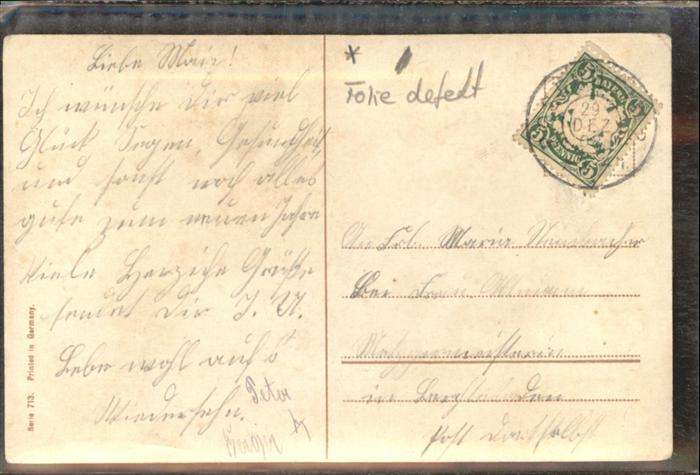 Liebe Marie!
Ich wünsche Dir viel
Glück Segen, Gesundheit
und sonst noch alles
gute zum neuen Jahre
Viele Herzliche Grüße
sendet Dir J. U.
Lebe wohl auf
Wiedersehn.
Peter
Serie 713. Printed in Germany.
Folie defekt
5 BAYERN 5
5 PFENNIG 5
29
DEZ
An Frl. Marie
Bei Frau
in
Post daselbst